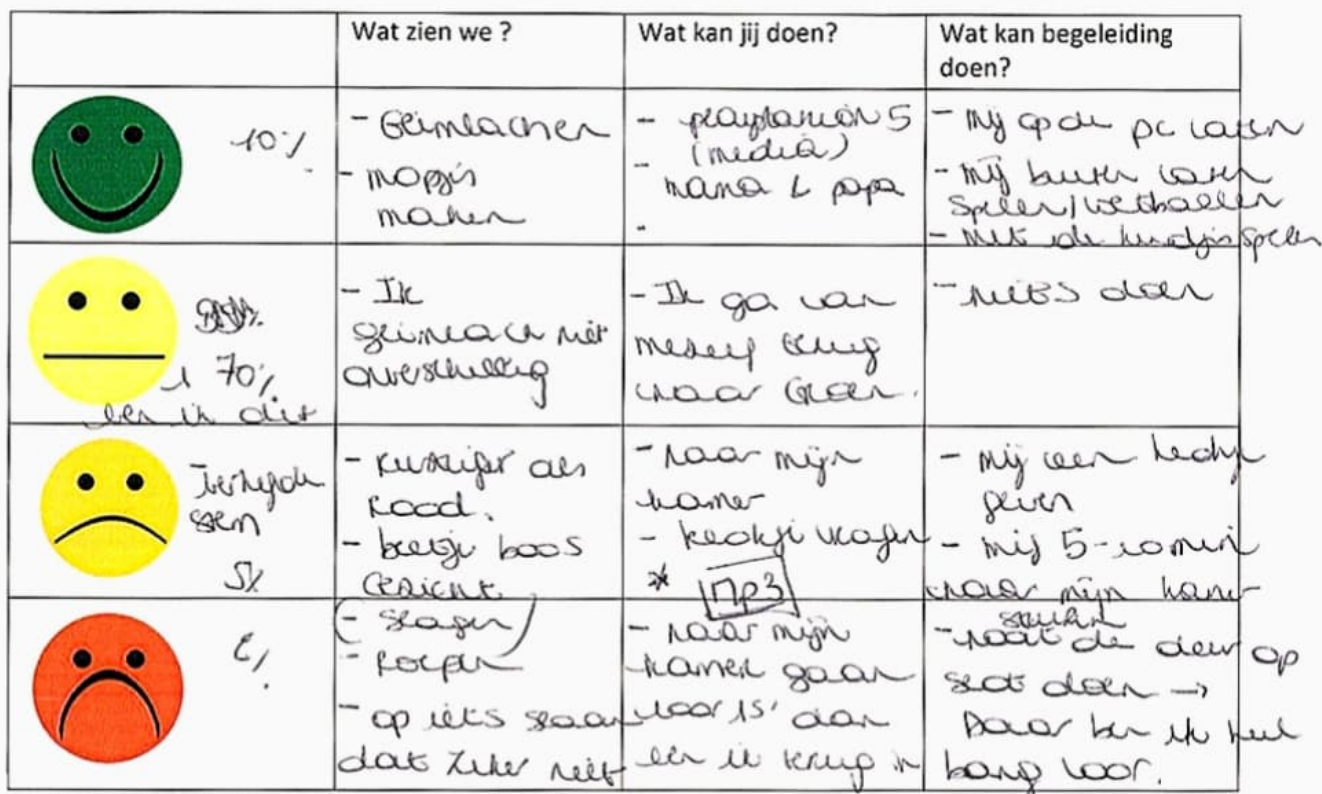 Wat zien we ?
Wat kan jij doen?
Wat kan begeleiding
doen?
10%
- Glimlachen
- mopjes
maken
- playstation 5
(media)
-
mama & papa
-
- Mij op de pc laten
- Mij buiten laten
spelen/voetballen
- Met de hondjes spelen
70%
ben ik dit
- Ik
glimlach niet
onverschillig
- Ik ga van
mezelf terug
naar Groen.
- niets doen
stem
5%
- rustiger als
Rood.
- beetje boos
Gezicht
- naar mijn
kamer
- koekje vragen
* MP3
- mij een koekje
geven
- mij 5-10 min
naar mijn kamer
sturen
- slagen
- Roepen
- op iets slaan
dat zeker niet
- naar mijn
kamer gaan
voor 15' dan
ben ik terug in
- nooit de deur op
slot doen ->
Daar ben ik heel
bang voor.